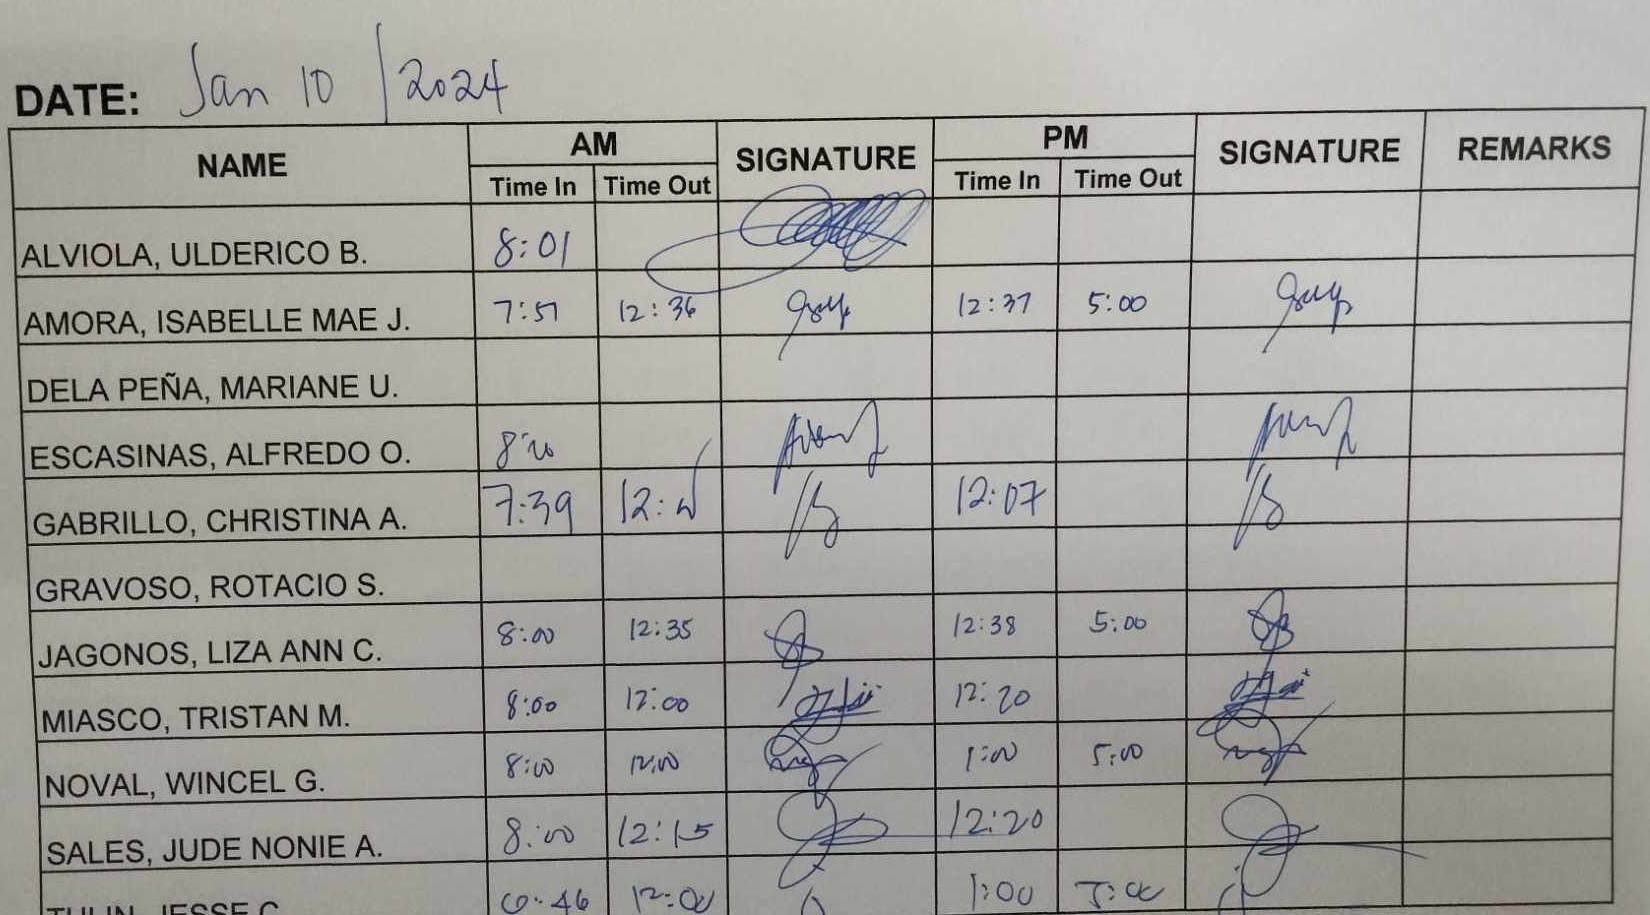 DATE: Jan 10 / 2024
NAME AM SIGNATURE PM SIGNATURE REMARKS
Time In Time Out Time In Time Out
ALVIOLA, ULDERICO B. 8:01
AMORA, ISABELLE MAE J. 7:57 12:36 12:37 5:00
DELA PEÑA, MARIANE U.
ESCASINAS, ALFREDO O.
GABRILLO, CHRISTINA A. 7:39 12:07
GRAVOSO, ROTACIO S.
JAGONOS, LIZA ANN C. 8:00 12:35 12:38 5:00
MIASCO, TRISTAN M. 8:00 12:00 12:20
NOVAL, WINCEL G. 8:00 12:00 1:00 5:00
SALES, JUDE NONIE A. 8:00 12:15 12:20
JESSE C 12:00 1:00 5:00